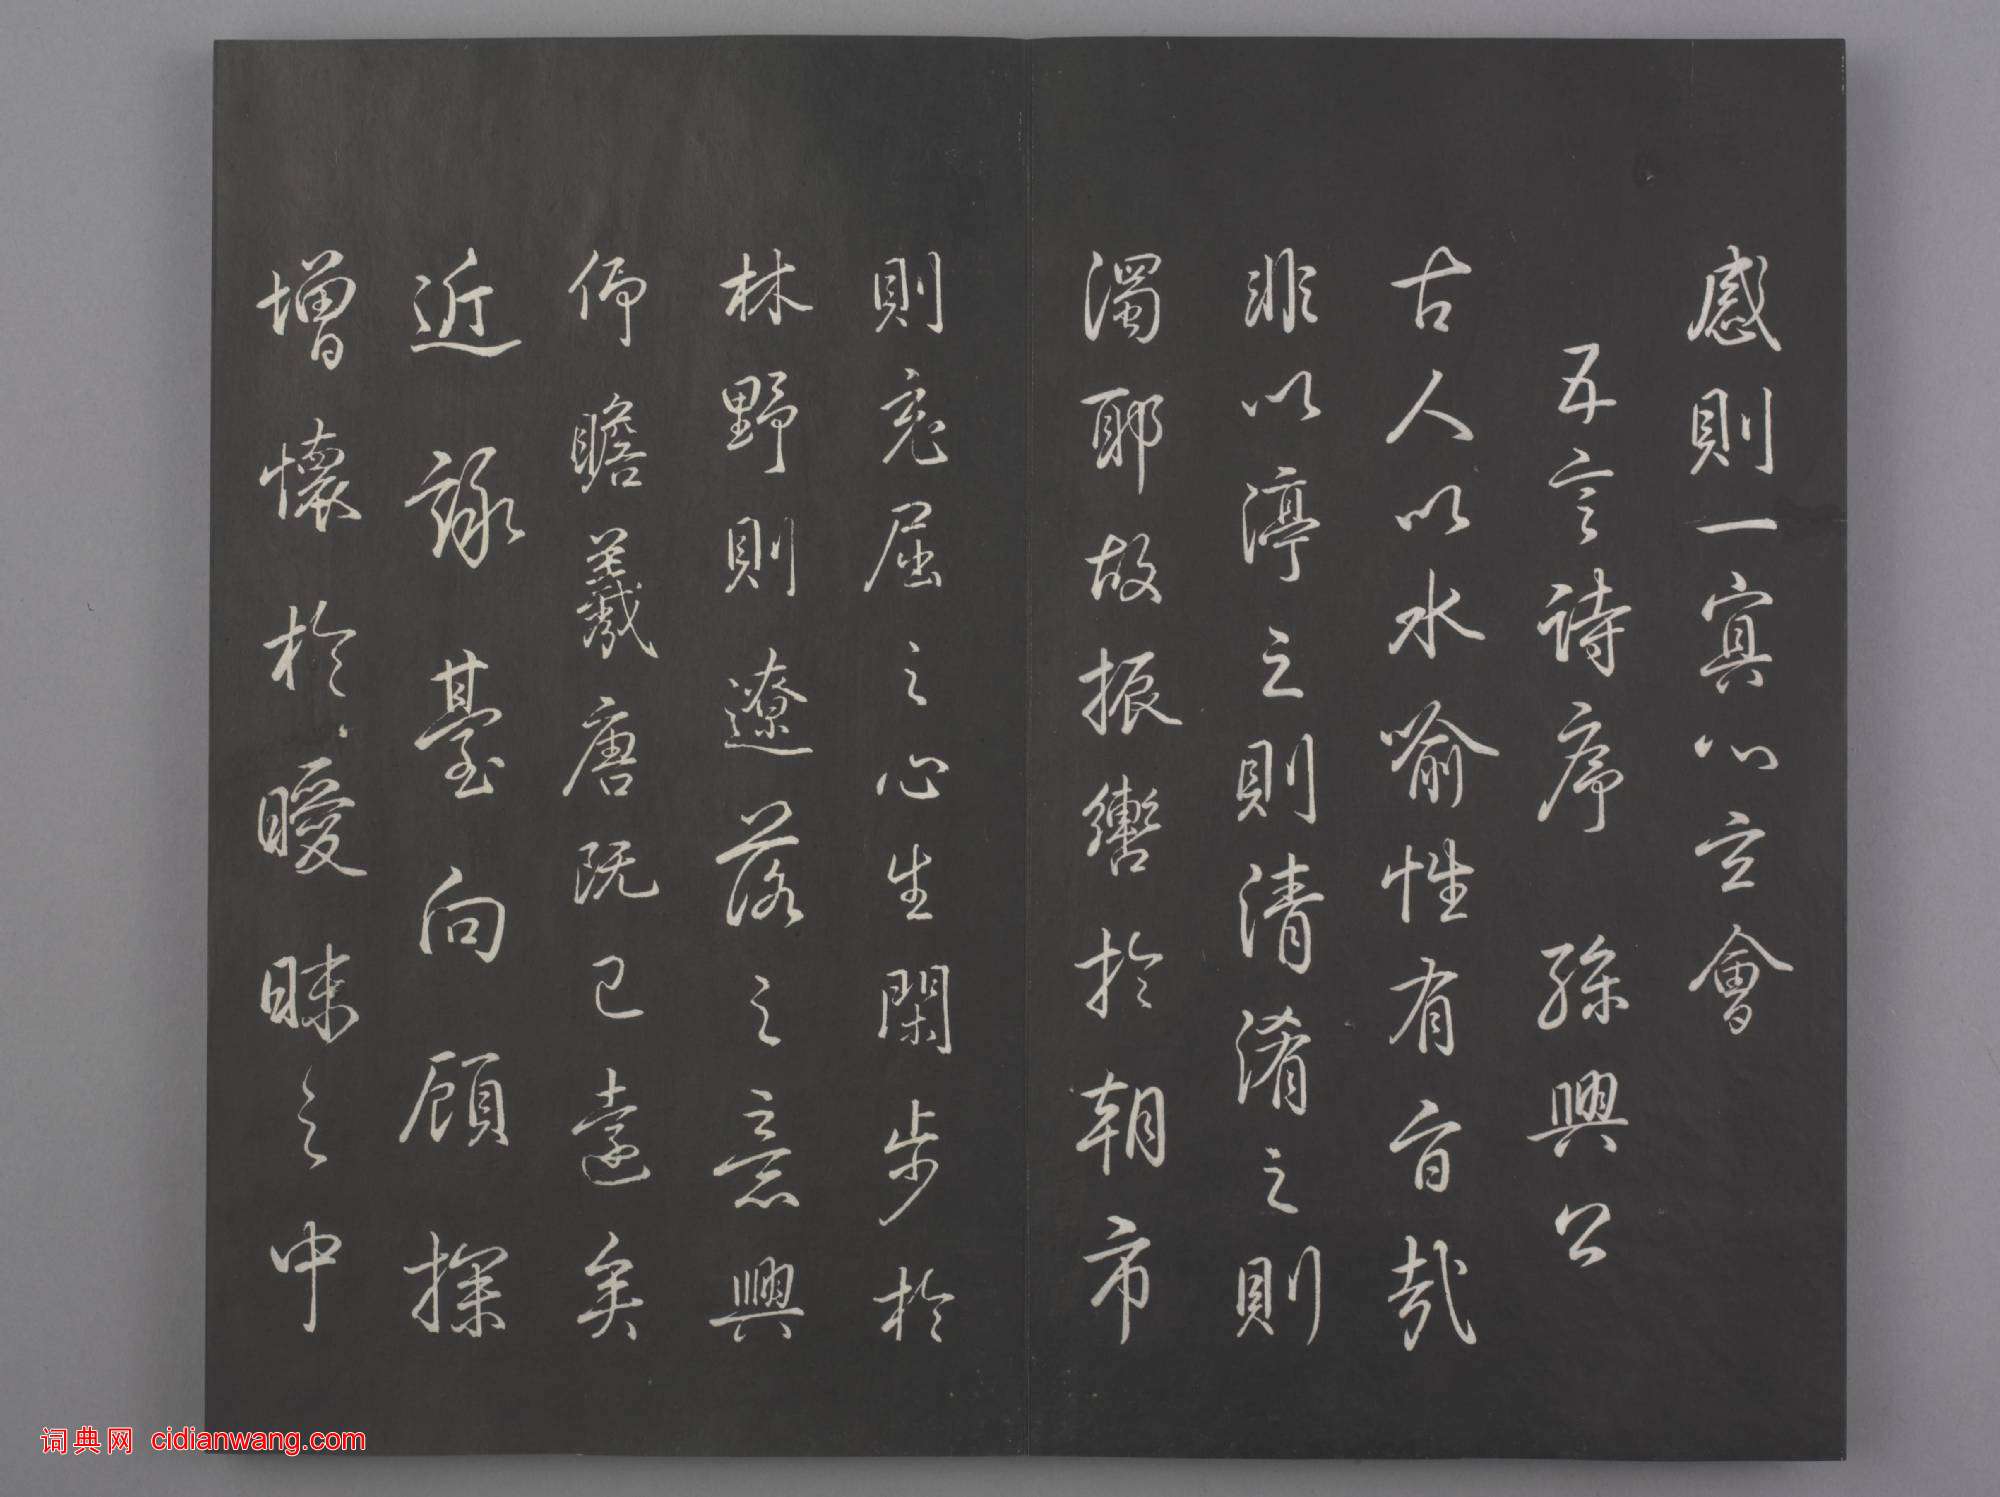 感則一寘心立會
五言詩序 孫興公
古人以水喻性有旨哉
非以渟之則清淆之則
濁耶故振轡於朝市
則充屈之心生閑步於
林野則遼落之意興
仰瞻羲唐既已遠矣
近詠臺向顧探
增懷於曖昧之中
词典网 cidianwang.com